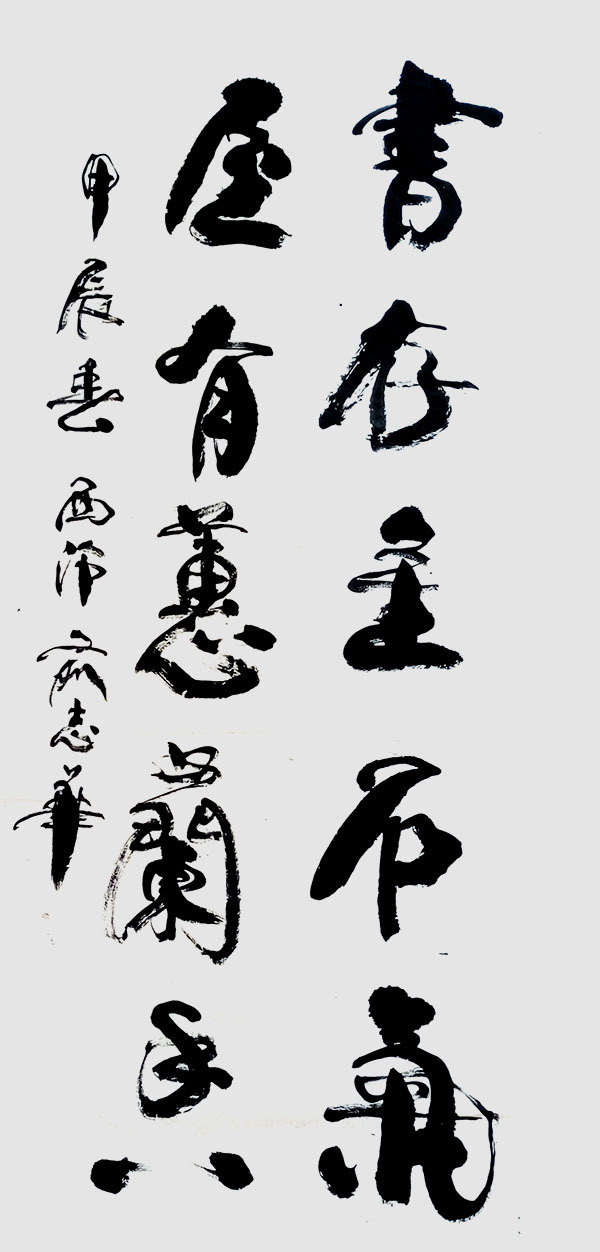 書存金石氣
屋有蕙蘭香
甲辰春西泠志華